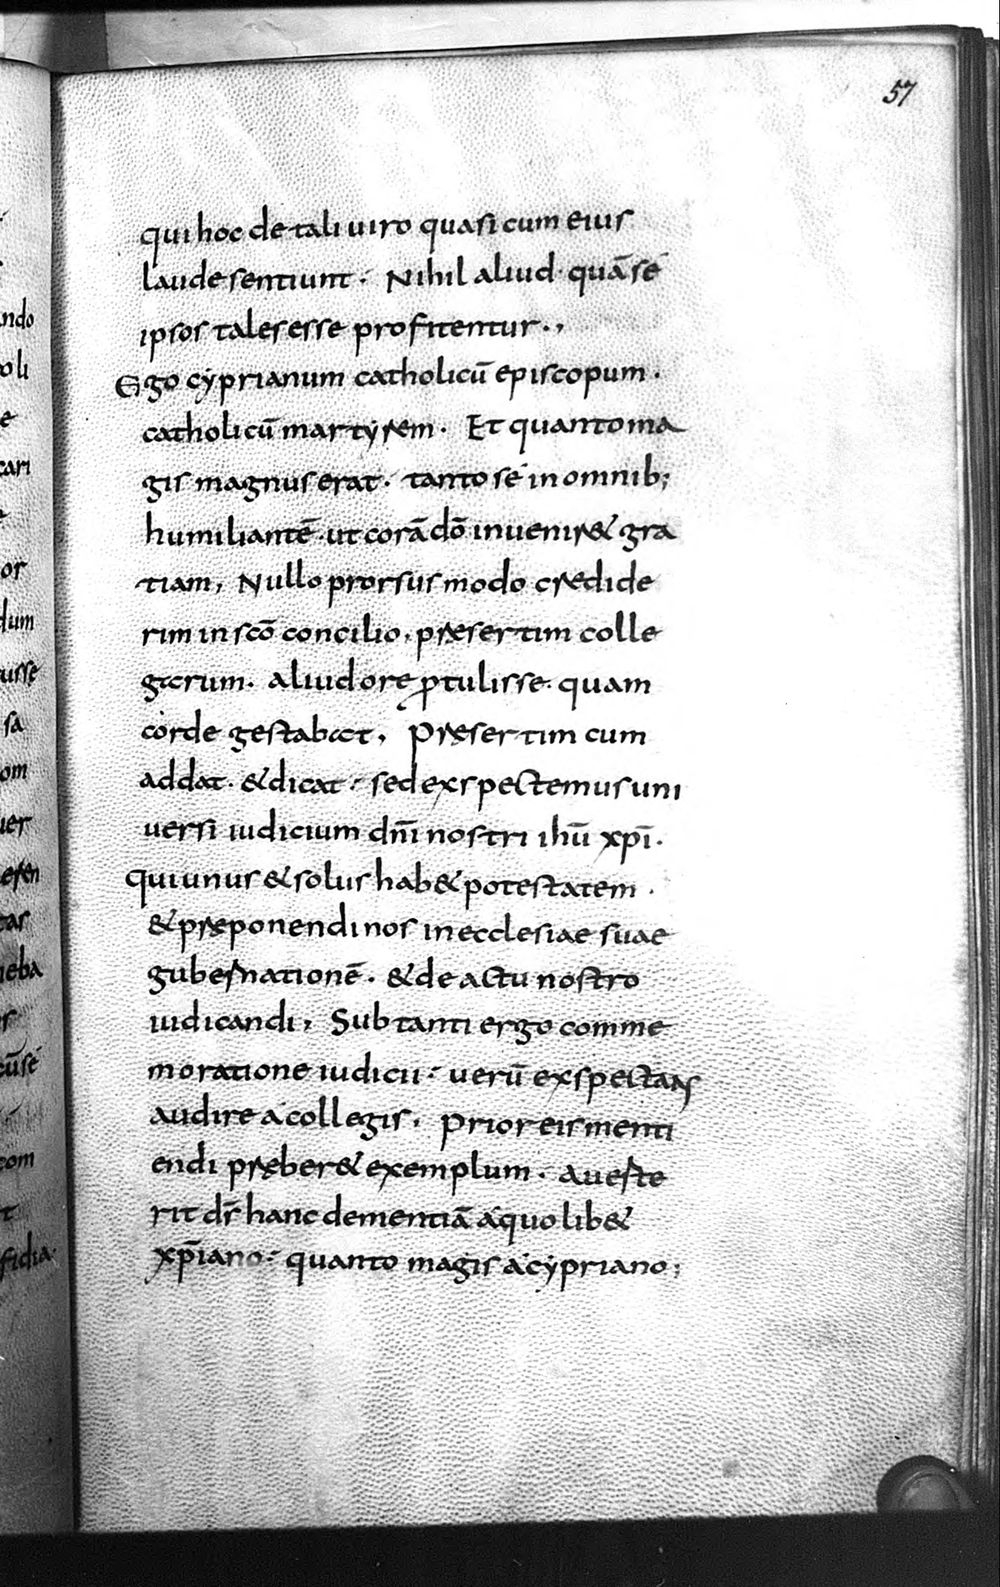 57
qui hoc de tali uiro quasi cum eius
laude sentiunt. Nihil aliud quā sé
ipsos tales esse profitentur.,
Ego cyprianum catholicū episcopum.
catholicū martyrem. Et quanto ma
gis magnus erat. tanto sé in omnib;
humiliantē. ut corā dō inuenir& gra
tiam, Nullo prorsus modo credide
rim in scō concilio, pręsertim colle
garum. aliud ore ꝓtulisse. quam
corde gestabat, Pręsertim cum
addat. & dicat. sed exspectemus uni
uersi iudicium dn̄i nostri ihū xp̄i.
qui unus & solus hab& potestatem.
& pręponendi nos in ecclesiae suae
gubernationē. & de actu nostro
iudicandi, Sub tanti ergo comme
moratione iudicii. uerū exspectans
audire á collegis, Prior eis menti
endi pręber& exemplum. Auerte
rit dr̄ hanc dementiā á quo lib&
xp̄iano. quanto magis á cypriano;
ndo
oli
e
cari
or
dum
usse
sa
om
uer
efen
tas
ieba
cūsé
com
t
fidia